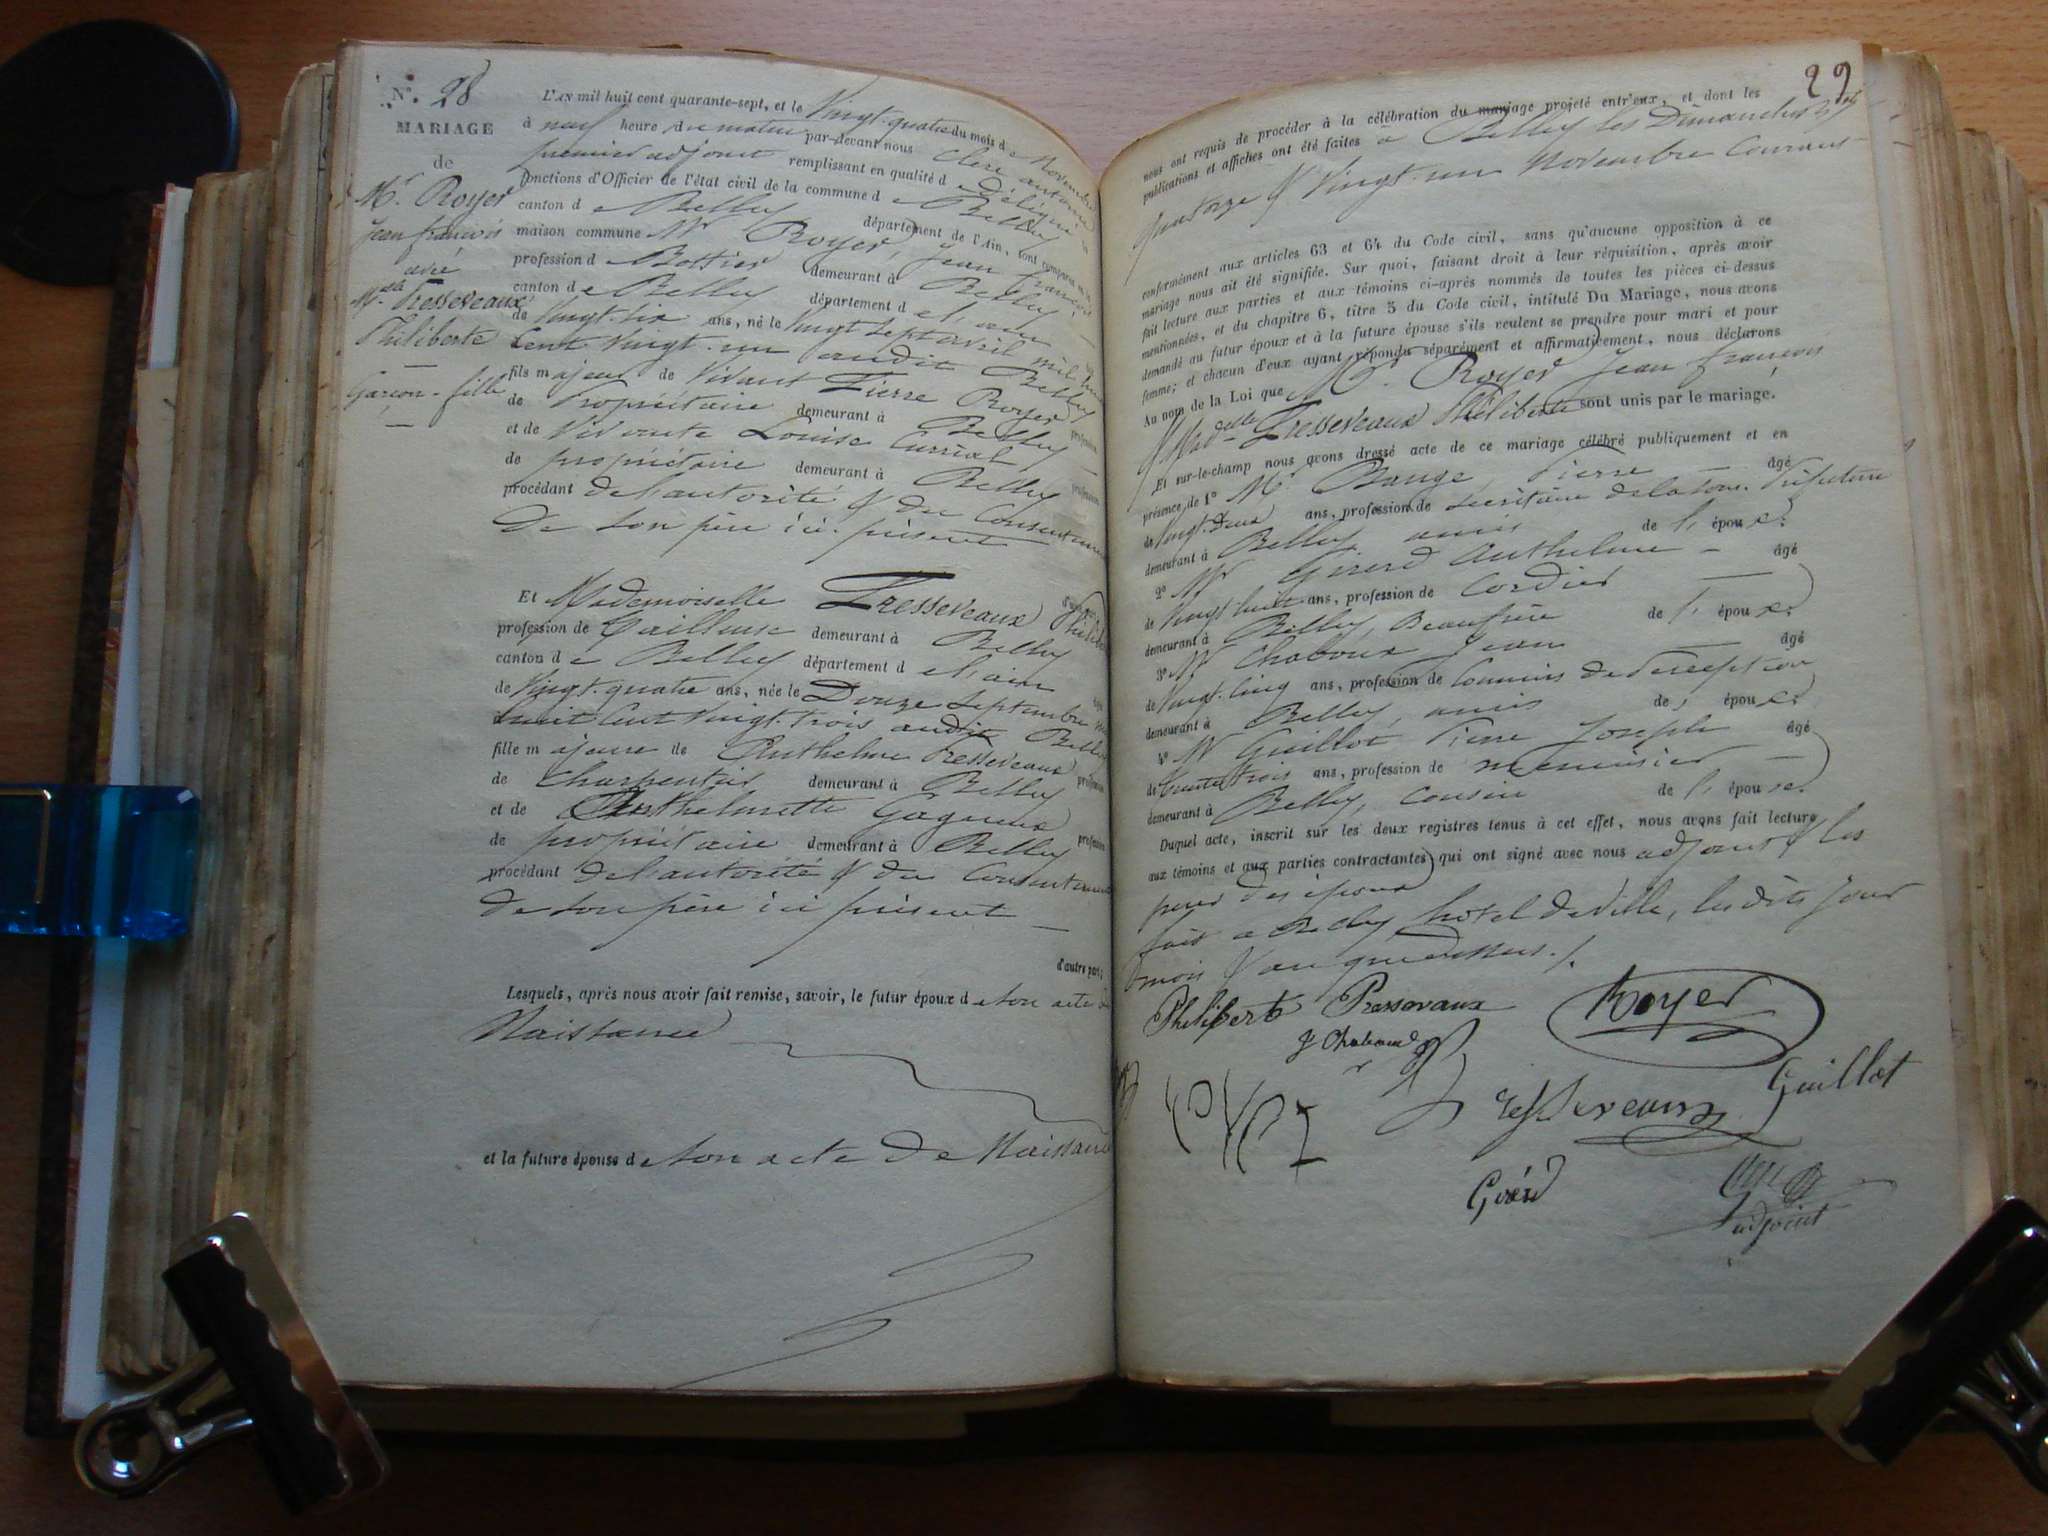 N°. 28
MARIAGE
de
Mr. Royer
jean francois
avec
Melle Tresseveaux
Philiberte
Garcon - fille
L'AN mil huit cent quarante-sept, et le Vingt-quatre du mois de Novembre
à neuf heure du matin par-devant nous Clerc antoine
premier adjoint remplissant en qualité de délégué
fonctions d'Officier de l'état civil de la commune de Belley
canton de Belley département de l'Ain, sont comparus
maison commune Mr Royer, Jean françois
profession de Bottier demeurant à Belley
canton de Belley département de l'ain
de Vingt-six ans, né le Vingt Sept avril mil huit
Cent Vingt-un audit Belley
fils majeur de Vivant Pierre Royer profession
de Propriétaire demeurant à Belley
et de Vivante Louise Curriat profession
de propriétaire demeurant à Belley
procédant de l'autorité & du Consentement
de son père ici présent
d'une part
Et Mademoiselle Tresseveaux Philiberte
profession de Tailleuse demeurant à Belley
canton de Belley département de l'ain
de Vingt-quatre ans, née le Douze Septembre mil
huit Cent Vingt-trois audit Belley
fille majeure de Anthelme Tresseveaux profession
de Charpentier demeurant à Belley
et de Anthelmette Gagneux profession
de propriétaire demeurant à Belley
procédant de l'autorité & du Consentement
de son père ici présent
d'autre part;
Lesquels, après nous avoir fait remise, savoir, le futur époux de son acte de
Naissance
et la future épouse de son acte de Naissance
29
nous ont requis de procéder à la célébration du mariage projeté entr'eux, et dont les
publications et affiches ont été faites à Belley les Dimanches
quatorze & Vingt-un Novembre Courant
conformément aux articles 63 et 64 du Code civil, sans qu'aucune opposition à ce
mariage nous ait été signifiée. Sur quoi, faisant droit à leur réquisition, après avoir
fait lecture aux parties et aux témoins ci-après nommés de toutes les pièces ci-dessus
mentionnées, et du chapitre 6, titre 5 du Code civil, intitulé Du Mariage, nous avons
demandé au futur époux et à la future épouse s'ils veulent se prendre pour mari et pour
femme; et chacun d'eux ayant répondu séparément et affirmativement, nous déclarons
Au nom de la Loi que Mr. Royer Jean francois
& Madelle Tresseveaux Philiberte sont unis par le mariage.
Et sur-le-champ nous avons dressé acte de ce mariage célébré publiquement et en
présence de 1° Mr. Bauge Pierre âgé
de Vingt-deux ans, profession de Secrétaire de la Sous-Préfecture
demeurant à Belley, amis de l'époux.
2° Mr Girerd Anthelme âgé
de Vingt huit ans, profession de Cordier
demeurant à Belley, Beaufrère de l'époux.
3° Mr Chaboux Jean âgé
de Vingt-Cinq ans, profession de Commis de perception
demeurant à Belley, amis de l'époux
4° Mr Guillot Pierre Joseph âgé
de trente trois ans, profession de menuisier
demeurant à Belley, Cousin de l'épouse.
Duquel acte, inscrit sur les deux registres tenus à cet effet, nous avons fait lecture
aux témoins et aux parties contractantes qui ont signé avec nous adjoint & les
peres des époux
fait a Belley hotel de Ville, les dits jour
mois & an que dessus./.
Philiberte Presseveaux Royer
J Chaboud
Tresseveaux Guillot
Girerd
adjoint